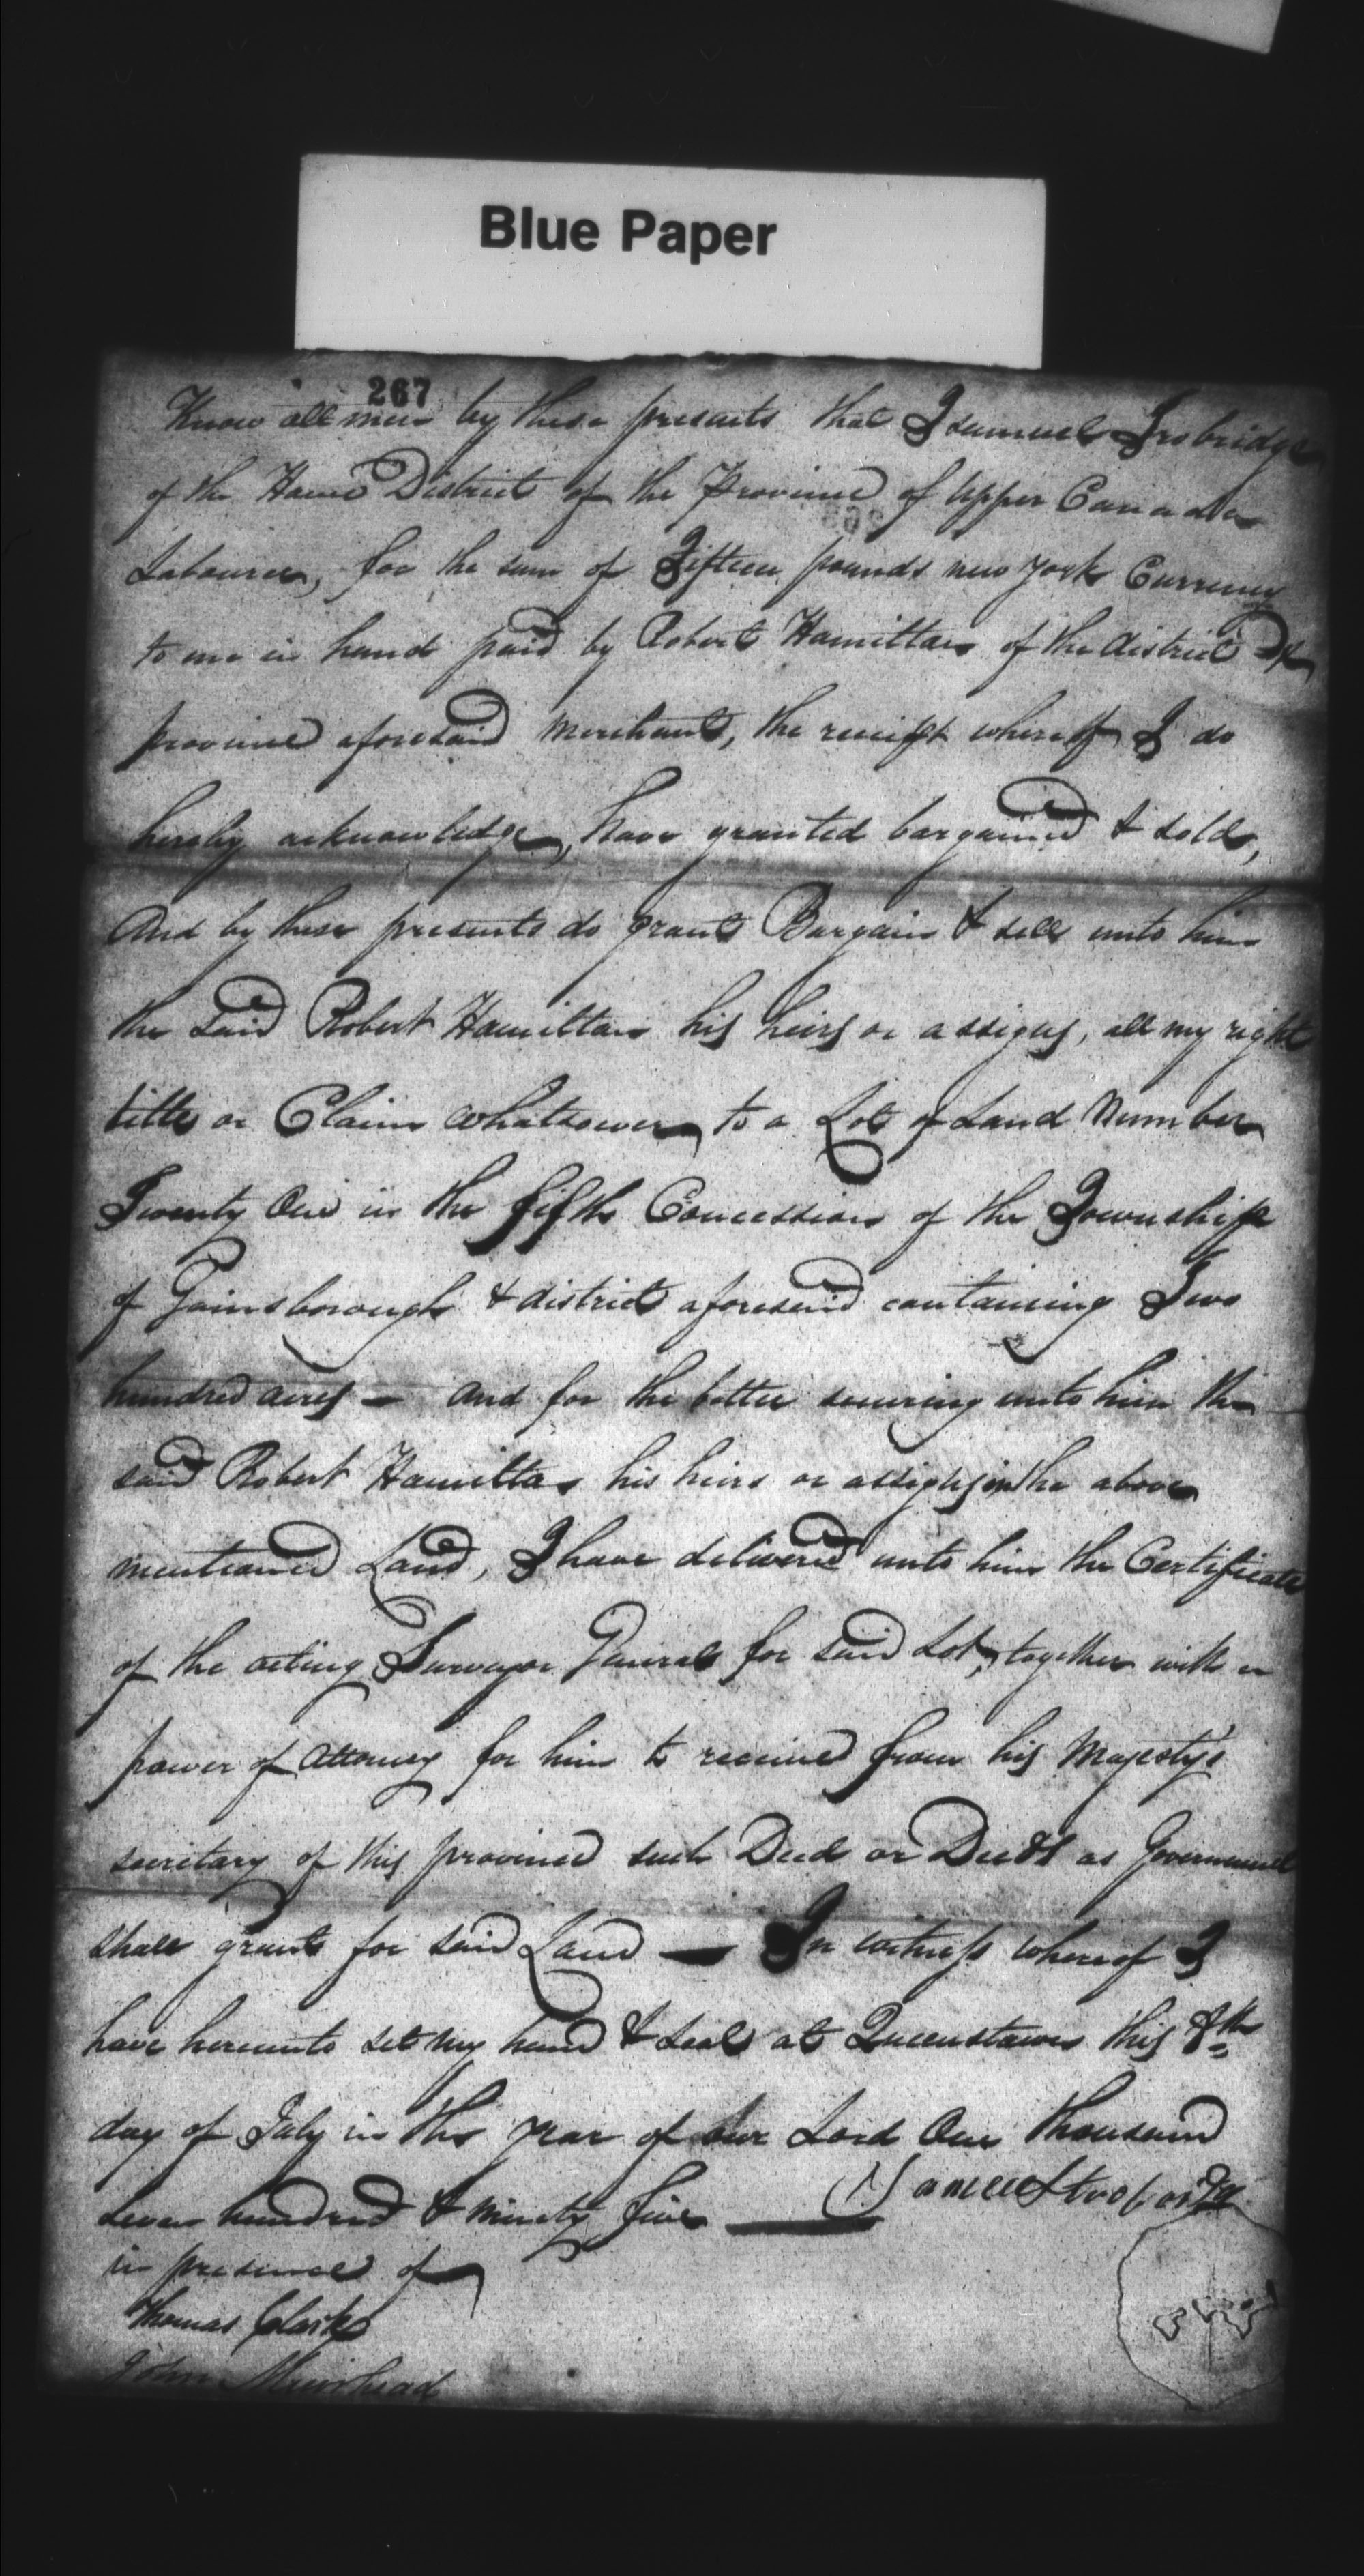 Blue Paper
267
Know all men by these presents that I Samuel Trobridge
of the Home District of the Province of Upper Canada
Labourer, for the sum of Fifteen pounds new york Currency
to me in hand paid by Robert Hamilton of the district &
province aforesaid Merchant, the receipt whereof I do
hereby acknowledge, have granted bargained & sold,
And by these presents do grant Bargain & sell unto him
the said Robert Hamilton his heirs or assigns, all my right
title or Claim whatsoever to a Lot of Land Number
Twenty One in the fifth Concession of the Township
of Gainsborough & district aforesaid containing Two
hundred acres — and for the better securing unto him the
said Robert Hamilton his heirs or assigns in the above
mentioned Land, I have delivered unto him the Certificate
of the acting Surveyor General for said Lot, together with a
power of Attorney for him to receive from his Majesty's
secretary of this province such Deed or Deeds as Government
shall grant for said Land — In witness whereof I
have hereunto set my hand & seal at Queenstown this 8th
day of July in the year of our Lord One thousand
seven hundred & ninety five —
in presence of
Thomas Clark
John Muirhead